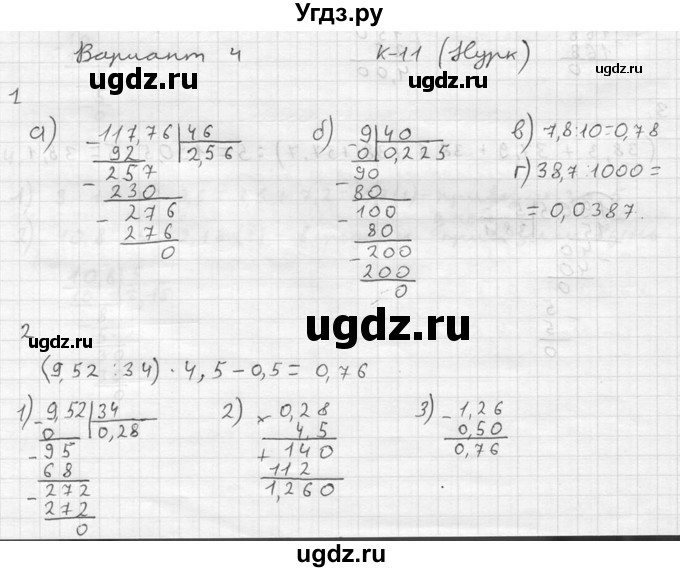 Угдз.ру
Вариант 4 К-11 (Нурк)
ugdz.ru ugdz.ru
1
а) 117,76 | 46
- 92 | 2,56
257
- 230
- 276
276
0
б) 9 | 40
- 0 | 0,225
90
- 80
- 100
80
- 200
200
0
в) 7,8:10=0,78
г) 38,7:1000=
= 0,0387.
ugdz.ru ugdz.ru
ugdz.ru
2
ugdz.ru
(9,52 : 34) · 4,5 - 0,5 = 0,76
1) - 9,52 | 34
0 | 0,28
- 95
68
- 272
272
0
2) × 0,28
4,5
+ 140
112
1,260
3) - 1,26
0,50
0,76
ugdz.ru
ugdz.ru ugdz.ru
ugdz.ru